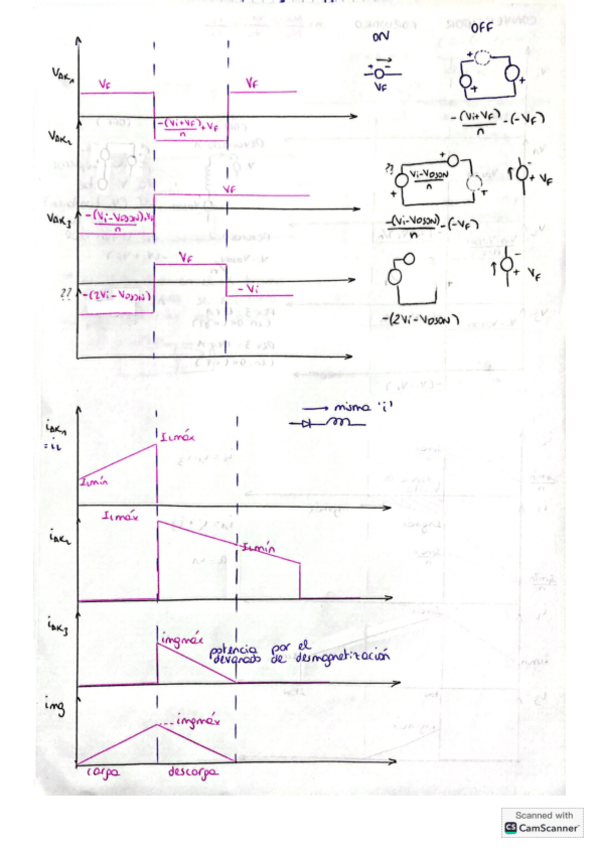 ON
OFF
V_AK1
V_F
V_F
-(Vi+V_F)/n + V_F
V_F
-(Vi+V_F)/n -(-V_F)
V_AK2
V_F
-(Vi-V_DSON)/n + V_F
??
Vi-V_DSON/n
V_F
-(Vi-V_DSON)/n -(-V_F)
V_AK3
V_F
-Vi
?? -(2Vi-V_DSON)
V_F
-(2Vi-V_DSON)
→ misma 'i'
i_AK1
= i_L
I_Lmín
I_Lmáx
i_AK2
I_Lmáx
I_Lmín
i_AK3
imgmáx
potencia por el
devanado de desmagnetización
img
imgmáx
carga
descarga
Scanned with
CS CamScanner